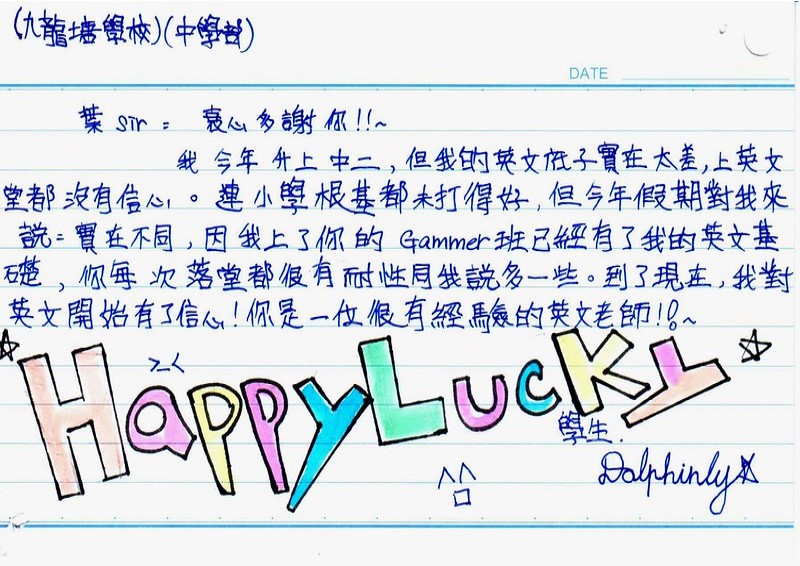 (九龍塘學校)(中學部)
DATE
葉 Sir = 衷心多謝你!!~
我今年升上中二,但我的英文底子實在太差,上英文
堂都沒有信心。連小學根基都未打得好,但今年假期對我來
說=實在不同,因我上了你的 Gammer班已經有了我的英文基
礎,你每次落堂都很有耐性同我說多一些。到了現在,我對
英文開始有了信心!你是一位很有經驗的英文老師!!~
>_<
Happy Lucky
學生.
Dolphinly